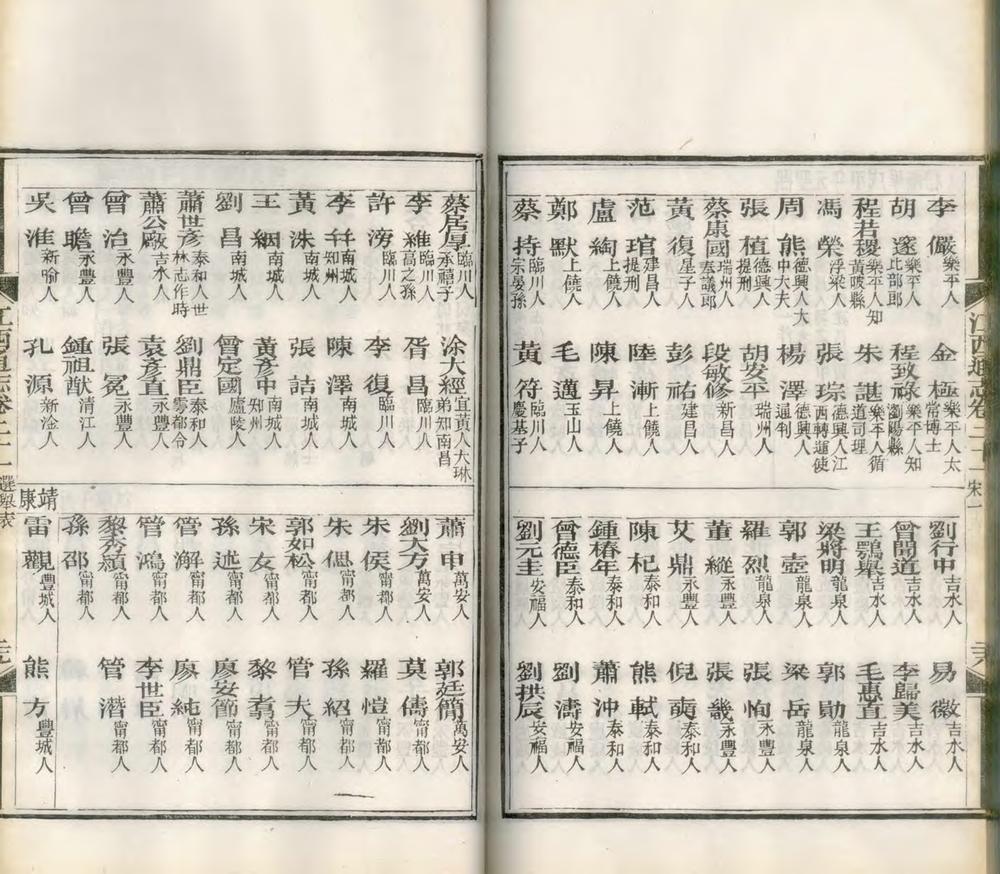 江西通志卷二十一 宋一
李儼樂平人
金極樂平人太常博士
胡邃樂平人比部郎
程致祿樂平人知劉陽縣
程若稷樂平人知黃陂縣
朱諶樂平人循道司理
馮榮浮梁人
張琮德興人江西轉運使
周熊德興人大中大夫
楊澤德興人通判
張植德興人提刑
胡安平瑞州人
蔡康國瑞州人奉議郎
段敏修新昌人
黃復星子人
彭祐建昌人
范琯建昌人提刑
陸漸上饒人
盧綯上饒人
陳昇上饒人
鄭默上饒人
毛邁玉山人
蔡持臨川人宗晏孫
黃符臨川人慶基子
劉行中吉水人
易徽吉水人
曾開道吉水人
李歸美吉水人
王鶚舉吉水人
毛惠直吉水人
梁將明龍泉人
郭勛龍泉人
郭壺龍泉人
梁岳龍泉人
羅烈龍泉人
張恂永豐人
董縱永豐人
張畿永豐人
艾鼎永豐人
倪奭泰和人
陳杞泰和人
熊軾泰和人
鍾椿年泰和人
蕭沖泰和人
曾德臣泰和人
劉濤安福人
劉元圭安福人
劉拱辰安福人
蔡居厚臨川人承禧子
涂大經宜黃人大琳弟知南昌
李維臨川人高之孫
胥昌臨川人
許滂臨川人
李復臨川人
李幹南城人知州
陳澤南城人
黃洙南城人
張詰南城人
王絪南城人
黃彥中南城人知州
劉昌南城人
曾定國廬陵人
蕭世彥泰和人世林志作時
劉鼎臣泰和人雩都令
蕭公敵吉水人
袁彥直永豐人
曾治永豐人
張冕永豐人
曾瞻永豐人
鍾祖猷清江人
吳淮新喻人
孔源新淦人
蕭申萬安人
郭廷簡萬安人
劉大方萬安人
莫儔甯都人
朱俟甯都人
羅愷甯都人
朱偲甯都人
孫紹甯都人
郭如松甯都人
管夫甯都人
宋女甯都人
黎翥甯都人
孫述甯都人
廖安節甯都人
管澥甯都人
廖純甯都人
管鴻甯都人
李世臣甯都人
黎秀巔甯都人
管潛甯都人
孫邵甯都人
靖康
雷觀豐城人
熊方豐城人
江西通志卷二十一 選舉表